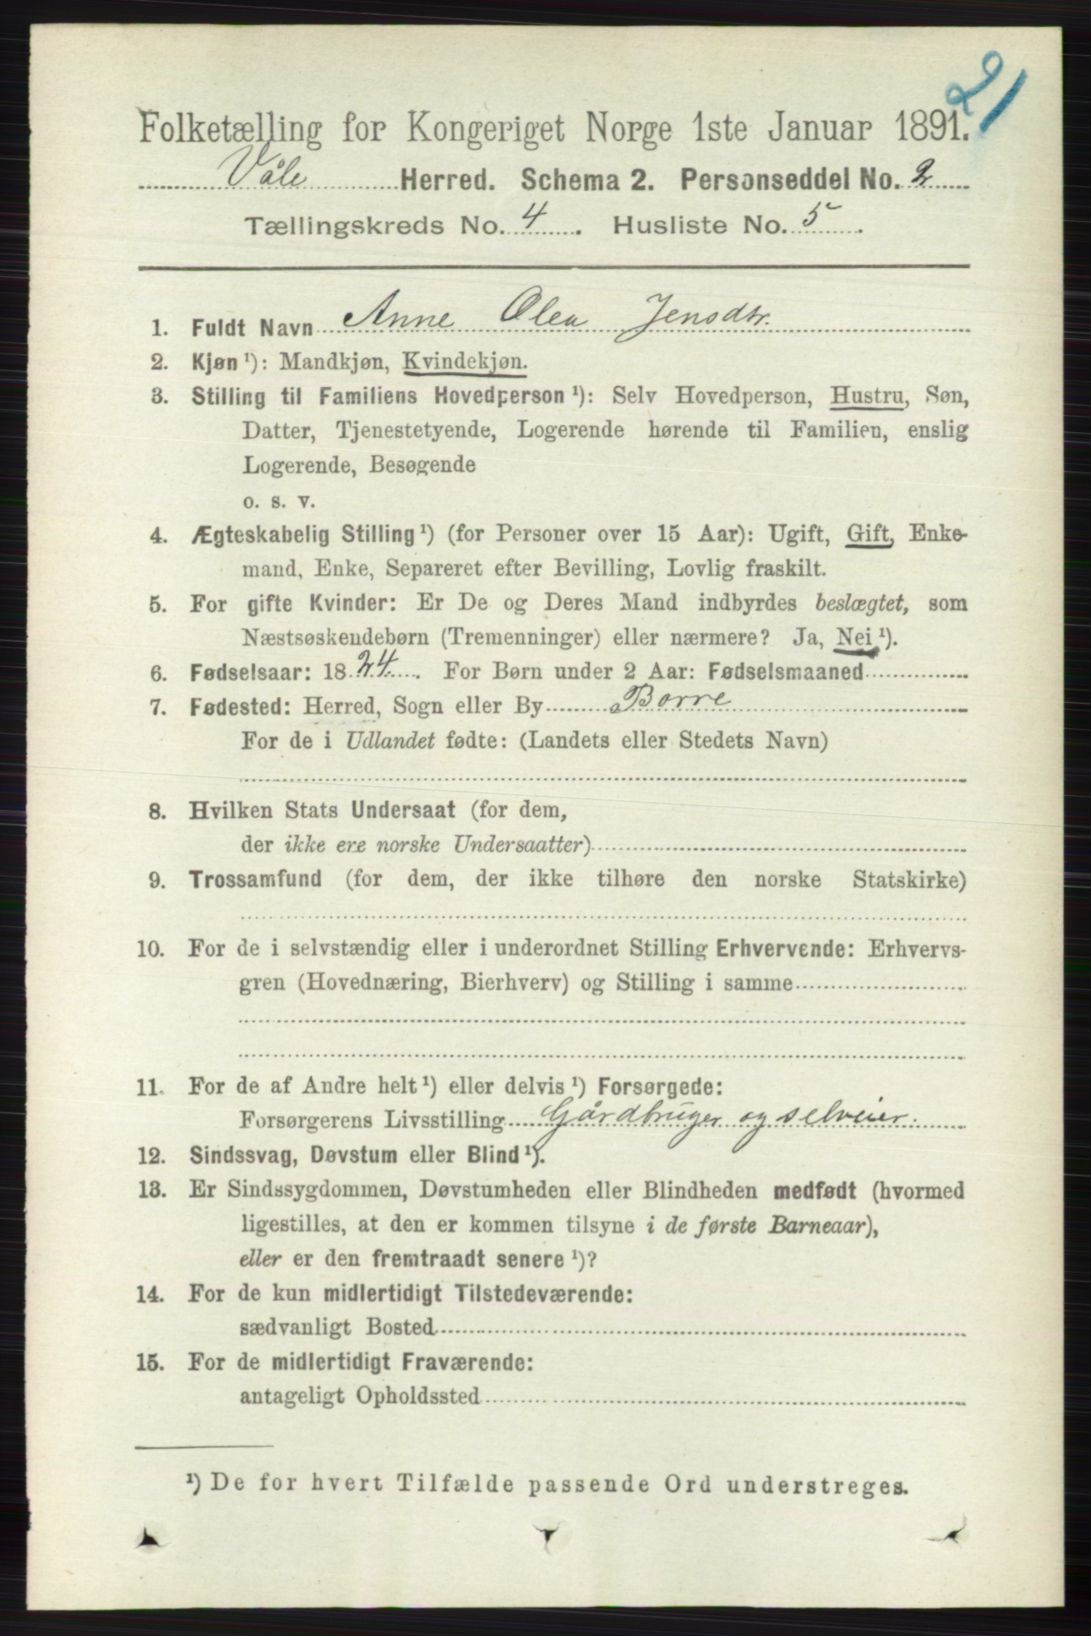 21
Folketælling for Kongeriget Norge 1ste Januar 1891.
Våle Herred. Schema 2. Personseddel No. 2
Tællingskreds No. 4. Husliste No. 5.
1. Fuldt Navn Anne Olea Jensdtr.
2. Kjøn ¹): Mandkjøn, Kvindekjøn.
3. Stilling til Familiens Hovedperson ¹): Selv Hovedperson, Hustru, Søn,
Datter, Tjenestetyende, Logerende hørende til Familien, enslig
Logerende, Besøgende
o. s. v.
4. Ægteskabelig Stilling ¹) (for Personer over 15 Aar): Ugift, Gift, Enke-
mand, Enke, Separeret efter Bevilling, Lovlig fraskilt.
5. For gifte Kvinder: Er De og Deres Mand indbyrdes beslægtet, som
Næstsøskendebørn (Tremenninger) eller nærmere? Ja, Nei ¹).
6. Fødselsaar: 1824. For Børn under 2 Aar: Fødselsmaaned
7. Fødested: Herred, Sogn eller By Borre
For de i Udlandet fødte: (Landets eller Stedets Navn)
8. Hvilken Stats Undersaat (for dem,
der ikke ere norske Undersaatter)
9. Trossamfund (for dem, der ikke tilhøre den norske Statskirke)
10. For de i selvstændig eller i underordnet Stilling Erhvervende: Erhvervs-
gren (Hovednæring, Bierhverv) og Stilling i samme
11. For de af Andre helt ¹) eller delvis ¹) Forsørgede:
Forsørgerens Livsstilling Gårdbruger og selveier.
12. Sindssvag, Døvstum eller Blind ¹).
13. Er Sindssygdommen, Døvstumheden eller Blindheden medfødt (hvormed
ligestilles, at den er kommen tilsyne i de første Barneaar),
eller er den fremtraadt senere ¹)?
14. For de kun midlertidigt Tilstedeværende:
sædvanligt Bosted
15. For de midlertidigt Fraværende:
antageligt Opholdssted
¹) De for hvert Tilfælde passende Ord understreges.